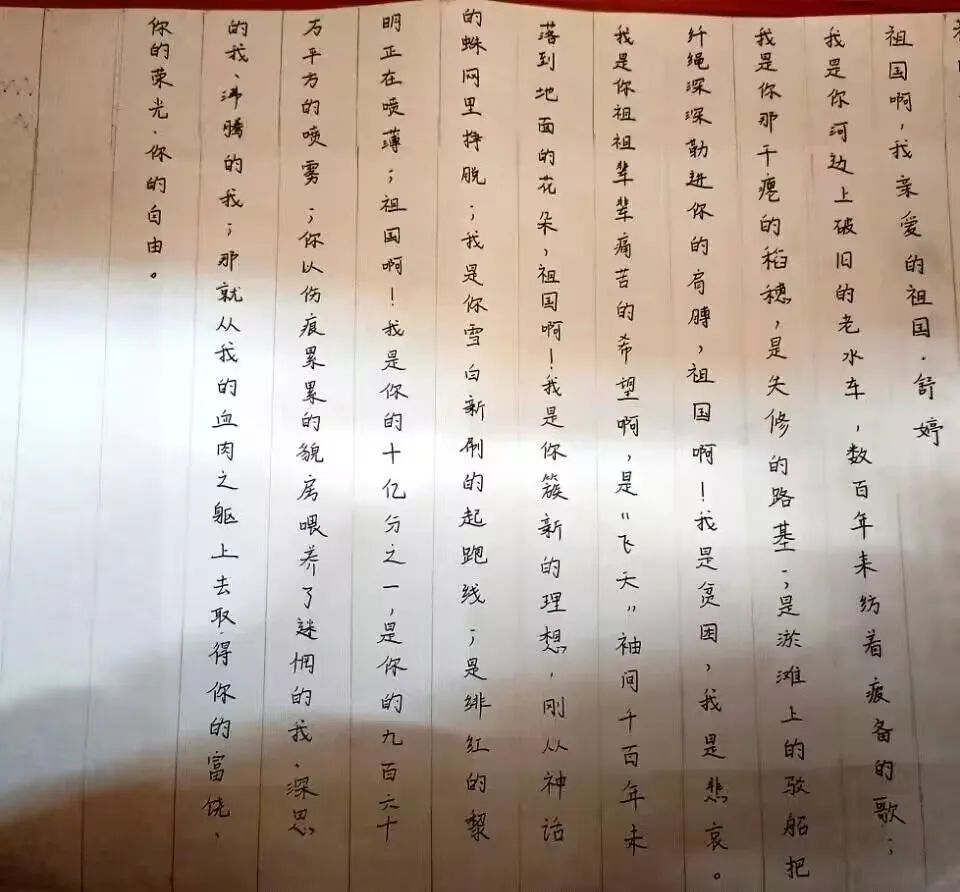 祖国啊,我亲爱的祖国.舒婷
我是你河边上破旧的老水车,数百年来纺着疲备的歌;
我是你那干瘪的稻穗,是失修的路基;是淤滩上的驳船把
纤绳深深勒进你的肩膊,祖国啊!我是贫困,我是悲哀。
我是你祖祖辈辈痛苦的希望啊,是"飞天"袖间千百年未
落到地面的花朵,祖国啊!我是你簇新的理想,刚从神话
的蛛网里挣脱;我是你雪白新刷的起跑线;是绯红的黎
明正在喷薄;祖国啊!我是你的十亿分之一,是你的九百六十
万平方的喷雾;你以伤痕累累的貌房喂养了迷惘的我、深思
的我、沸腾的我;那就从我的血肉之躯上去取得你的富饶、
你的荣光.你的自由。